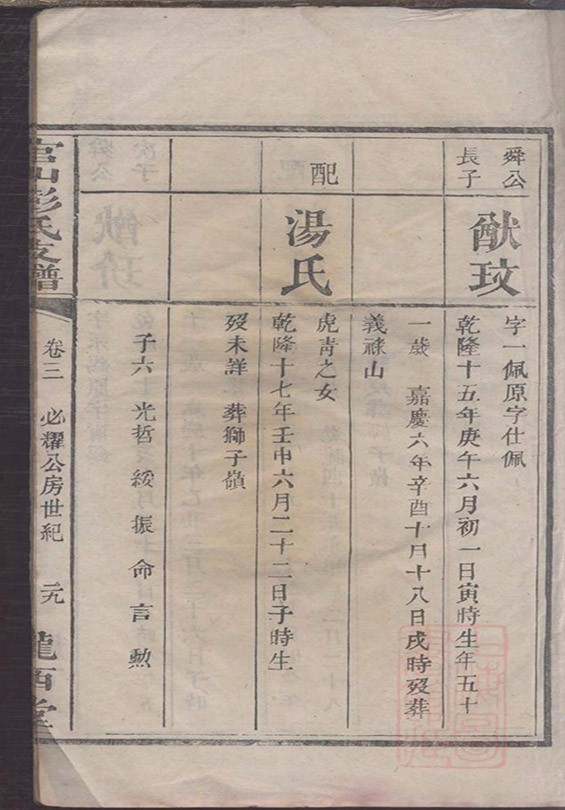 舜公
長子
猷玟
字一佩原字仕佩
乾隆十五年庚午六月初一日寅時生年五十
一歲 嘉慶六年辛酉十月十八日戌時歿葬
義祿山
配
湯氏
虎青之女
乾隆十七年壬申六月二十二日子時生
歿未詳 葬獅子嶺
子六 光哲 綏 振 命 言 勲
彭氏支譜
卷三 必耀公房世紀